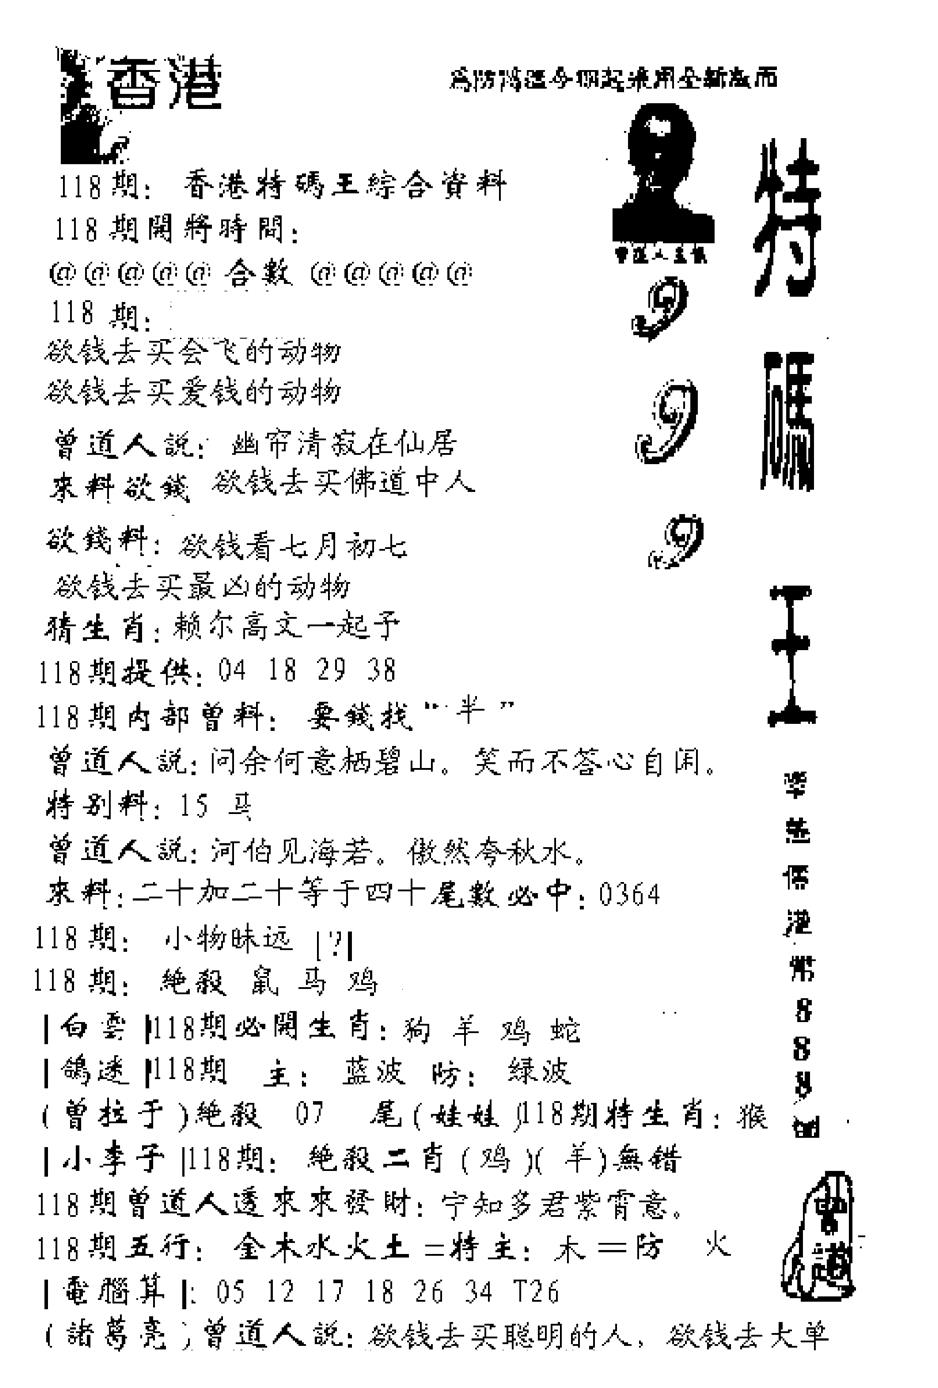 香港
為防濫區今期起采用全新版面
118期：香港特碼王綜合資料
118期開將時間：
@@@@@合數@@@@@
118期：
欲钱去买会飞的动物
欲钱去买爱钱的动物
曾道人説：幽帘清寂在仙居
來料欲錢 欲钱去买佛道中人
欲錢料：欲钱看七月初七
欲钱去买最凶的动物
猜生肖：赖尔高文一起予
118期提供：04 18 29 38
118期内部曾料：要錢找“半”
曾道人説：问余何意栖碧山。笑而不答心自闲。
特别料：15 马
曾道人説：河伯见海若。傲然夸秋水。
來料：二十加二十等于四十尾數必中：0364
118期：小物昧远 |?|
118期：絶殺 鼠 马 鸡
|白雲|118期必開生肖：狗 羊 鸡 蛇
|鴿迷|118期 主：蓝波 防：绿波
(曾拉于)絶殺 07 尾(娃娃)118期特生肖：猴
|小李子|118期：絶殺二肖(鸡)(羊)無錯
118期曾道人透來來發財：宁知多君紫霄意。
118期五行：金木水火土=特主：木=防 火
|電腦算|：05 12 17 18 26 34 T26
(諸葛亮)曾道人説：欲钱去买聪明的人，欲钱去大单
曾道人主儀
9
9
9
特碼王
港幣888
曾道